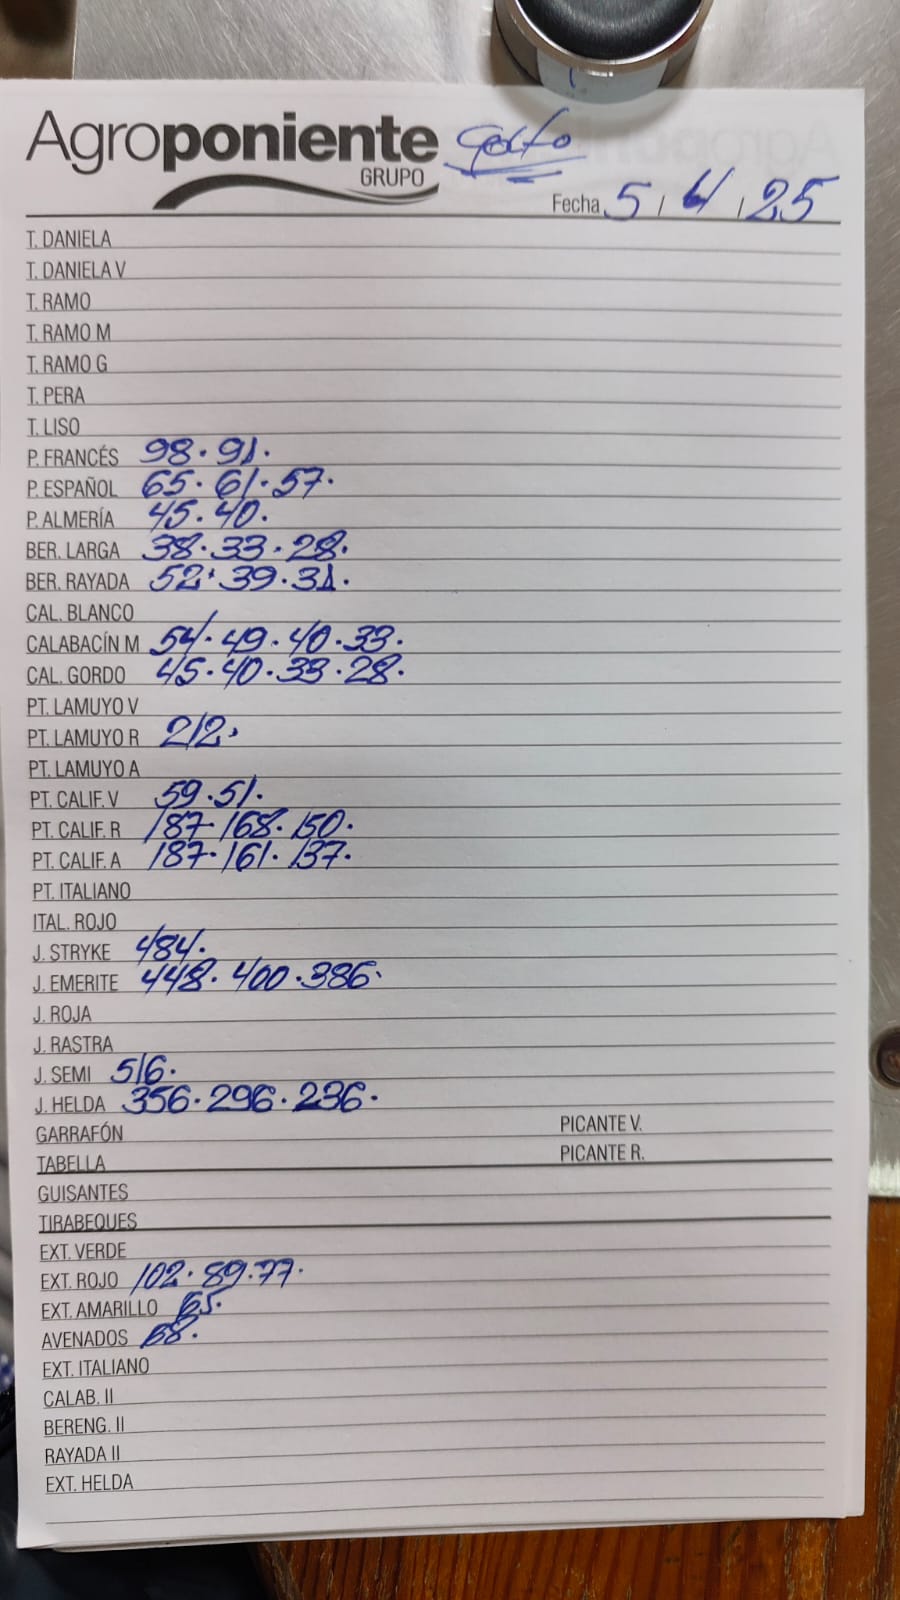 Agroponiente
GRUPO
Fecha 5 / 4 / 25
T. DANIELA
T. DANIELA V
T. RAMO
T. RAMO M
T. RAMO G
T. PERA
T. LISO
P. FRANCÉS 98. 91.
P. ESPAÑOL 65. 61. 57.
P. ALMERÍA 45. 40.
BER. LARGA 38. 33. 28.
BER. RAYADA 52. 39. 31.
CAL. BLANCO
CALABACÍN M 54. 49. 40. 33.
CAL. GORDO 45. 40. 33. 28.
PT. LAMUYO V
PT. LAMUYO R 212.
PT. LAMUYO A
PT. CALIF. V 59. 51.
PT. CALIF. R 187. 168. 150.
PT. CALIF. A 187. 161. 137.
PT. ITALIANO
ITAL. ROJO
J. STRYKE 484.
J. EMERITE 448. 400. 386.
J. ROJA
J. RASTRA
J. SEMI 516.
J. HELDA 356. 296. 236.
GARRAFÓN PICANTE V.
TABELLA PICANTE R.
GUISANTES
TIRABEQUES
EXT. VERDE
EXT. ROJO 102. 89. 77.
EXT. AMARILLO 65.
AVENADOS
EXT. ITALIANO
CALAB. II
BERENG. II
RAYADA II
EXT. HELDA